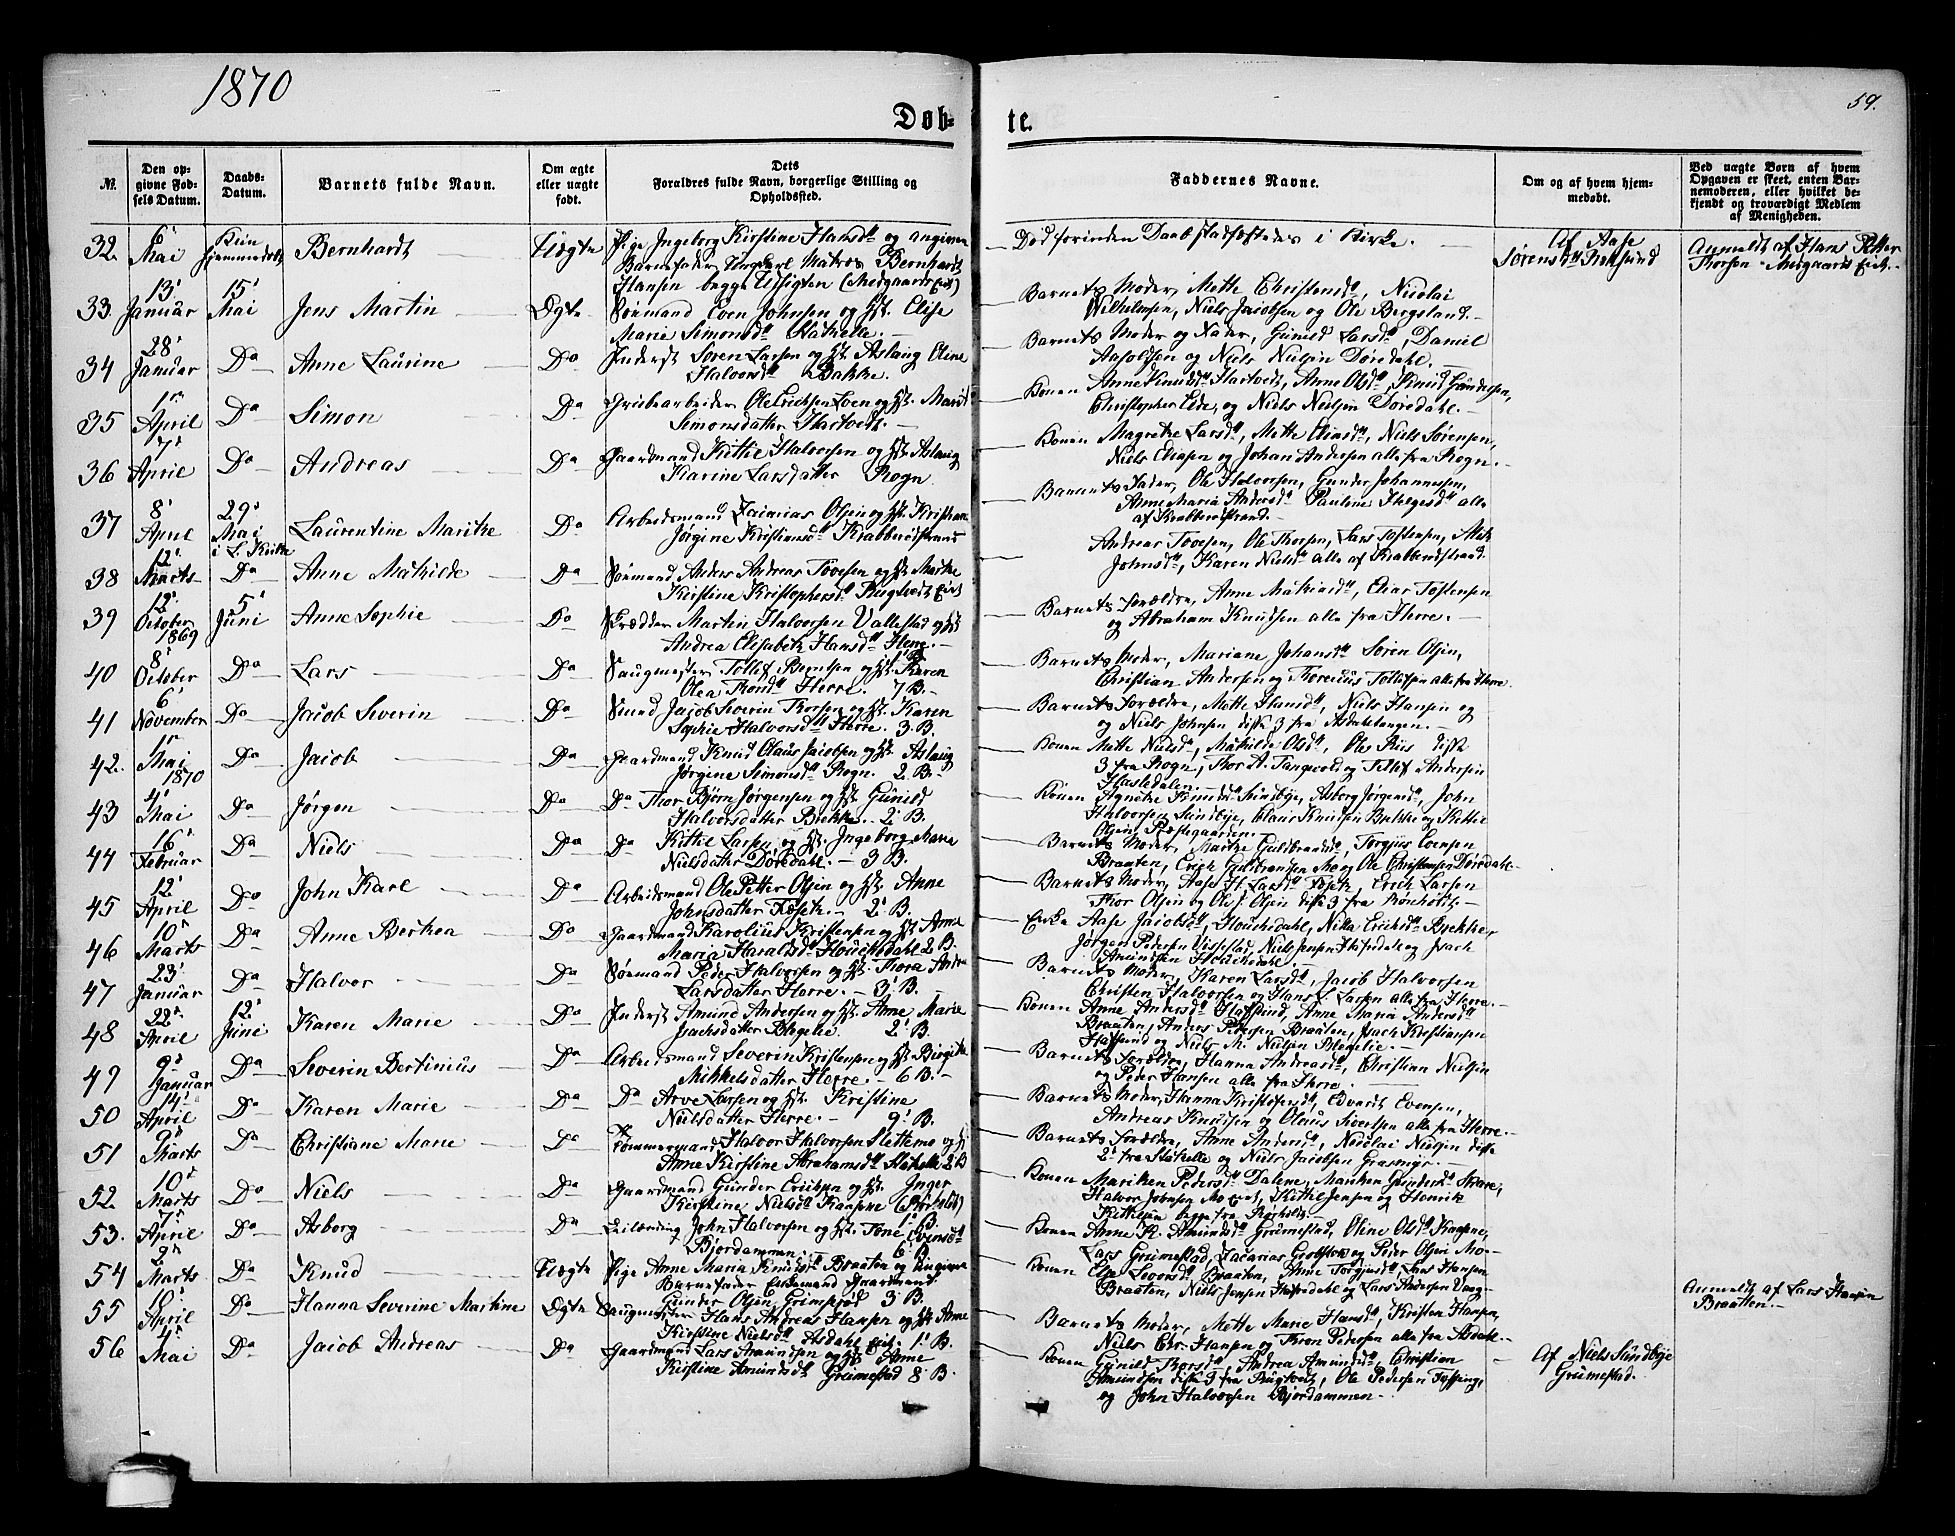 1870
59.
Døb-
te.
№.
Den op-
givne Fød-
sels Datum.
Daabs-
Datum.
Barnets fulde Navn.
Om ægte
eller uægte
født.
Dets
Forældres fulde Navn, borgerlige Stilling og
Opholdssted.
Faddernes Navne.
Om og af hvem hjem-
medøbt.
Ved uægte Børn af hvem
Opgaven er skeet, enten Bar-
nemoderen, eller hvilket be-
kjendt og troværdigt Medlem
af Menigheden.
32. 6' Mai Kun hjemmedøbt Bernhardt Uægte
Pige Ingeborg Kirstine Hansdtr og angiven
Barnefader Matros Bernhardt
Hansen begge
Død forinden Daabstadfæstedes i Kirke.
Af Aase
Sørensdtr
Anmeldt af Hans Petter
Thorsen
33. 13' Januar 15' Mai Jens Martin Ægte
Sømand Even Johnsen og H. Elise
Marie Simonsdtr Stathelle.
Barnets Moder, Mette Christensdtr, Nicolai
Wilhelmsen, Niels Jacobsen og Ole Bergsland.
34 28' Januar Do Anne Laurine Do
Inderst Søren Larsen og H. Aslaug Oline
Halvorsdtr Bakke.
Barnets Moder og Fader, Gunild Larsdtr, Daniel
og Niels Nielsen Dørdahl.
35 1ste April Do Simon Do
Grubearbeider Ole Erichsen og H. Marit
Simonsdatter Hartvedt.
Konen Anne Knudsdtr Hartvedt, Anne Olsdtr, Knud Gundersen,
Christopher Eide, og Niels Nielsen Dørdahl.
36 7' April Do Andreas Do
Gaardmand Kittil Halvorsen og H. Aslaug
Karine Larsdatter Rogn.
Konen Magrethe Larsdtr, Mette Eliasdtr, Niels Sørensen,
Niels Eliasen og Johan Andersen alle fra Rogn.
37 8' April 29' Mai i L. Kirke Laurentine Marithe Do
Arbeidsmand Zacarias Olsen og H. Kristiane
Jørgine Kristiansdtr Krabberødstrand
Barnets Fader, Ole Halvorsen, Gunder Johannesen,
Anne Maria Andersdtr Pauline Helgesdtr alle
af Krabberødstrand.
38 12' Marts Do Anne Mathilde Do
Sømand Anders Andreas Tovesen og H. Marthe
Kirstine Kristophersdtr Rugtvedt Eiet
Andreas Tovesen, Ole Thorsen, Lars Tostensen,
Johnsdtr, Karen Nielsdtr alle af Krabberødstrand.
39 12' October 1869 5' Juni Anne Sophie Do
Skrædder Martin Halvorsen Vallestad og H.
Andrea Elisabeth Hansdtr Herre.
Barnets Forældre, Anne Mathiasdtr, Einar Tostensen
og Abraham Knudsen alle fra Herre.
40 8' October Do Lars Do
Saugmester Tollef Berntsen og H. Karen
Olea Thronsdtr Herre. 7 B.
Barnets Moder, Mariane Johansdtr Søren Olsen,
Christian Andersen og Thorenius Tollefsen alle fra Herre.
41 6' November Do Jacob Severin Do
Smed Jacob Severin Thorsen og H. Karen
Sophie Halvorsdtr Herre. 3 B.
Barnets Forældre, Mette Hansdtr, Niels Hansen og
og Niels Johnsen disse 3 fra Asdaletangen.
42. 1ste Mai 1870 Do Jacob Do
Gaardmand Knud Olaus Jacobsen og H. Aslaug
Jørgine Simonsdtr Rogn. 2 B.
Konen Mette Nielsdtr, Mathilde Olsdtr, Ole Riis disse
3 fra Rogn, Thor A. Tangvald og Tellef Andersen
Hasledalen.
43 4' Mai Do Jørgen Do
Do Thor Bjørn Jørgensen og H. Gunild
Halvorsdatter Brekke. 2' B.
Konen Agnethe Knudsdtr Sundbye, Asborg Jørgensdtr, John
Halvorsen Sundbye, Claus Knudsen Bekke og Kittil
Olsen Præstegaarden.
44 16' Februar Do Niels Do
Do Kittil Larsen og H. Ingeborg Marie
Nielsdatter Dørdahl. 3 B.
Barnets Moder, Marthe Guldbrandsdtr, Torgjus Evensen
Braaten, Erich Guldbrandsen Mo og Ole Christensen Dørdahl
45 12' April Do John Karl Do
Arbeidsmand Ole Petter Olsen og H. Anne
Johnsdatter Fosseth. 2' B.
Barnets Moder, Aase H. Larsdtr Fosseth, Erich Larsen
Thor Olsen og Ole J. Olsen disse 3 fra Rønholdt.
46 10' Marts Do Anne Berthea Do
Gaardmand Karolius Kristensen og H. Anne
Maria Haraldsdtr Houchedahl 2 B.
Enke Aase Jacobsdtr, Houchedahl, Nilia Erichsdtr Brekke,
Jørgen Pedersen Vissestad, Niels Jensen og Isach
Amundsen Houchedahl.
47 23' Januar Do Halvor Do
Sømand Peder Halvorsen og H. Thora Andrea
Larsdatter Herre. 3 B.
Barnets Moder, Karen Larsdtr, Jacob Halvorsen
Christen Halvorsen og Hans L. Larsen alle fra Herre.
48 22' April 12' Juni Karen Marie Do
Inderst Amund Andersen og H. Anne Marie
Isachsdatter Blegelie. 2' B.
Konen Anne Andersdtr Hafsund, Anne Maria Andersdtr
Braaten, Anders Pettersen Braaten, Isach Kristiansen
Hafsund og Niels M. Nielsen Blegelie.
49 9' Januar Do Severin Bertinius Do
Arbeidsmand Severin Kristensen og H. Birgithe
Mikkelsdatter Herre. 6 B.
Barnets Forældre, Hanna Andreasdtr, Christian Nielsen
og Peder Hansen alle fra Herre.
50 14' April Do Karen Marie Do
Do Arve Larsen og H. Kristine
Nielsdatter Herre. 9' B.
Barnets Moder, Hanna Kristofersdtr, Edvardt Evensen,
Andreas Knudsen og Olaus Sivertsen alle fra Herre.
51 9' Marts Do Christiane Marie Do
Tømmermand Halvor Halvorsen Slethmo og H.
Anne Kirstine Abrahamsdtr Stathelle 2 B
Barnets Forældre, Anne Andersdtr, Nicolai Nielsen disse
2' fra Stathelle og Niels Jacobsen Grasmyr.
52. 10' Marts Do Niels Do
Gaardmand Gunder Erichsen og H. Inger
Kirstine Nielsdtr Kaasene (Rørholdt)
Konen Mariken Pedersdtr Dalene, Mariken Gundersdtr Skare,
Halvor Johnsen Mo Eiet, Kittil Jensen og Henrik
Kittilsen begge fra Rørholdt.
53. 7' April Do Asborg Do
Leilænding John Halvorsen og H. Tone Evensdtr 1' B.
Bjordammen. 6' B.
Konen Anne K. Amundsdtr Grummestad, Oline Olsdtr Kaasene,
Lars Grummestad, Zacarias Grobsten og Peder Olsen Mo.
54 2' Marts Do Knud Uægte
Pige Anne Maria Knudsdtr Braaten og Angiven
Barnefader Enkemand Gaardmand
Gunder Olsen Grimsrød 3' B.
Konen Else Sevorsdtr Braaten, Anne Torgjusdtr, Lars Hansen
Braaten, Niels Jensen og Lars Andersen Vaag.
Anmeldt af Lars Hansen
Braatten.
55 10' April Do Hanna Severine Martine Ægte
Saugmester Hans Andreas Hansen og H. Anne
Kirstine Nielsdtr Asdahl Eiet 1' B.
Barnets Moder, Mette Marie Hansdtr, Kristen Hansen,
Niels Chr. Hansen og Thron Pedersen alle fra Asdahl.
56 4' Mai Do Jacob Andreas Do
Gaardmand Lars Amundsen og H. Anne
Kirstine Amundsdtr Grummestad 8 B.
Konen Gunild Thorsdtr, Andrea Amundsdtr, Christian
Amundsen disse 3 fra Rugtvedt, Ole Pedersen Fossing,
og John Halvorsen Bjordammen.
Af Niels Sundbye
Grummestad.